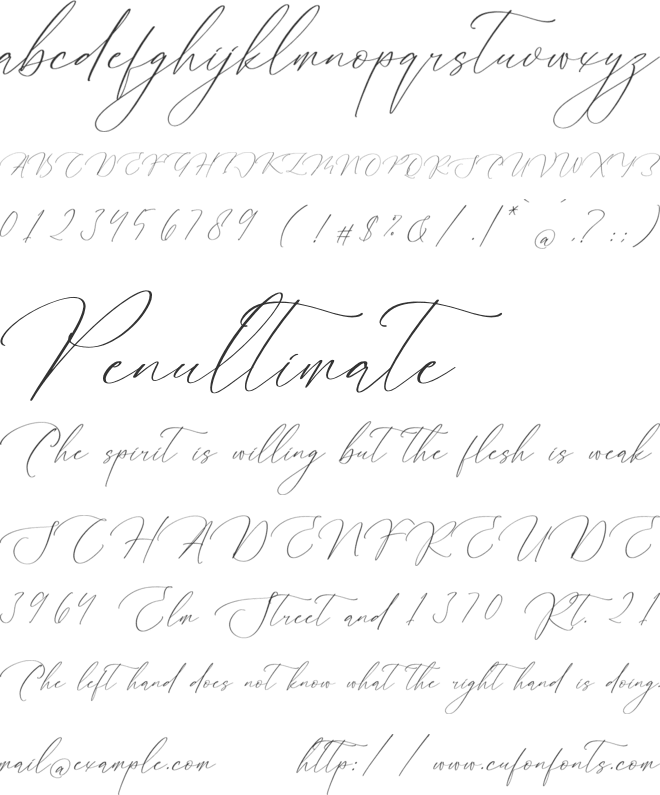 abcdefghijklmnopqrstuvwxyz
ABCDEFGHIJKLMNOPQRSTUVWXYZ
0123456789 (!#$%&/.|*`@´.?:;)
Penultimate
The spirit is willing but the flesh is weak
SCHADENFREUDE
3964 Elm Street and 1370 Rt. 21
The left hand does not know what the right hand is doing.
mail@example.com http://www.cufonfonts.com